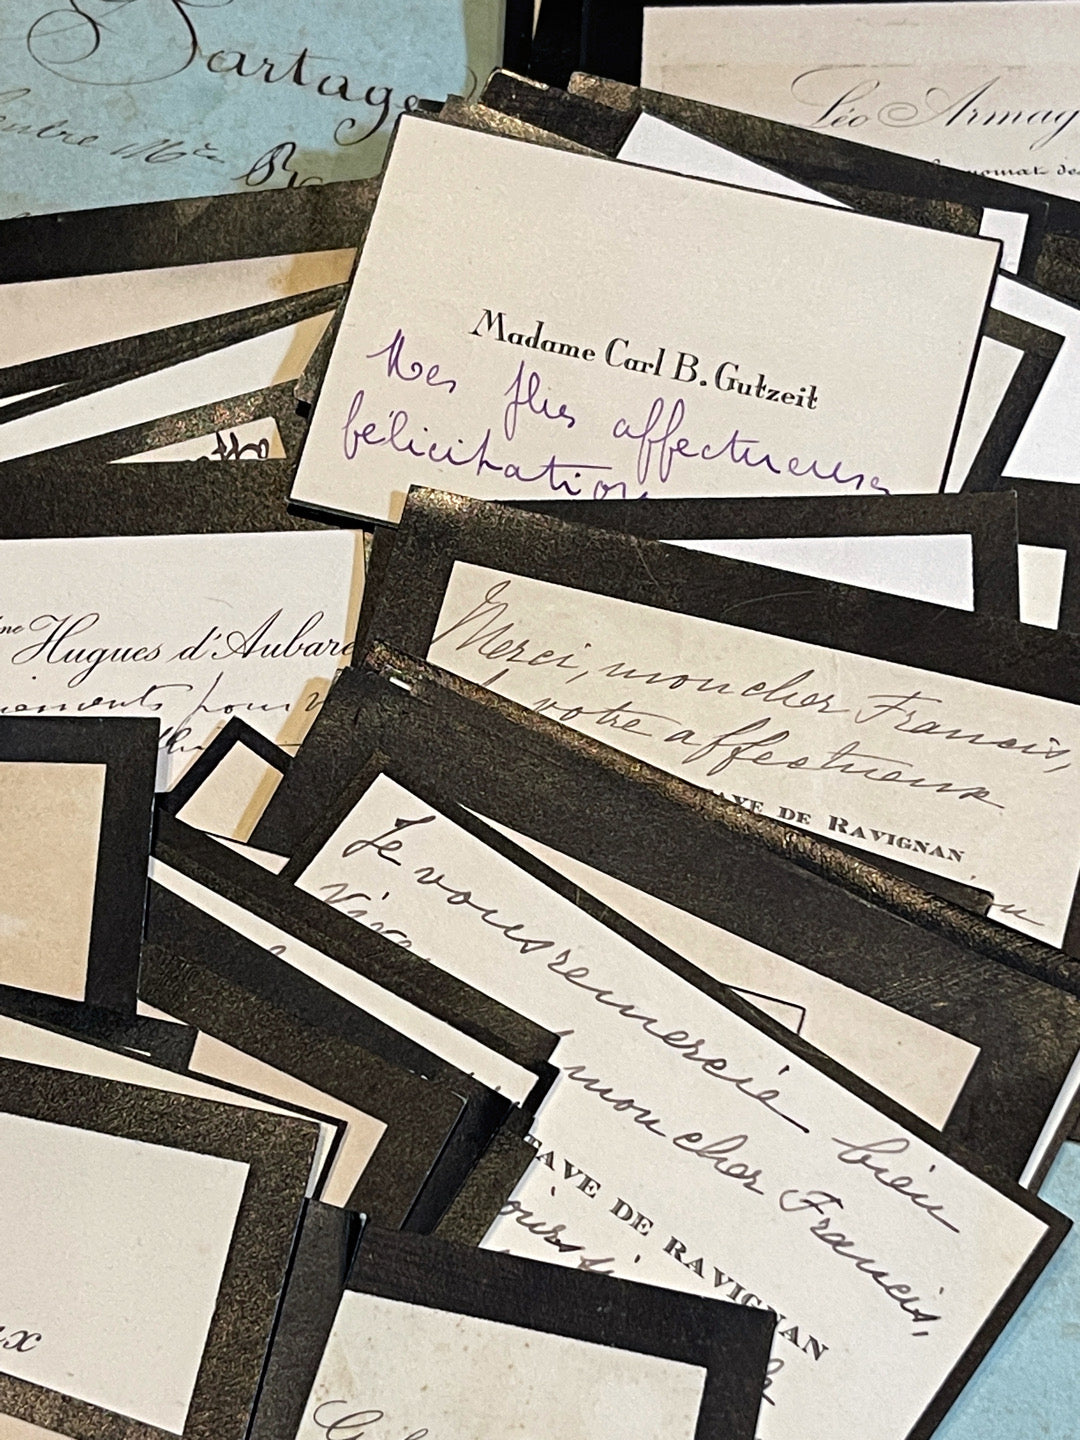 Partage
entre
Léo Armag
Madame Carl B. Gutzeit
Mes plus affectueuses
félicitation
me Hugues d'Aubare
pour
Merci, mon cher Francis,
votre affectueux
AVE DE RAVIGNAN
Je vous remercie bien
mon cher Francis,
TAVE DE RAVIGNAN
ours
ax